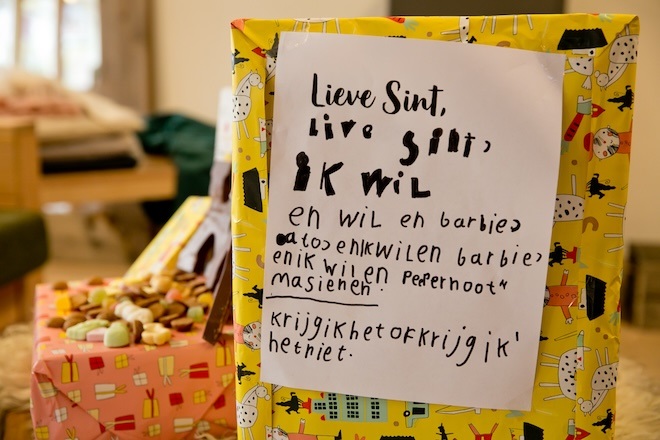 Lieve Sint,
Live Sint,
ik wil
en wil en barbie,
atos enikwilen barbie,
enik wilen Pepernoot"
masienen.
krijgikhetofkrijgik'
hetniet.